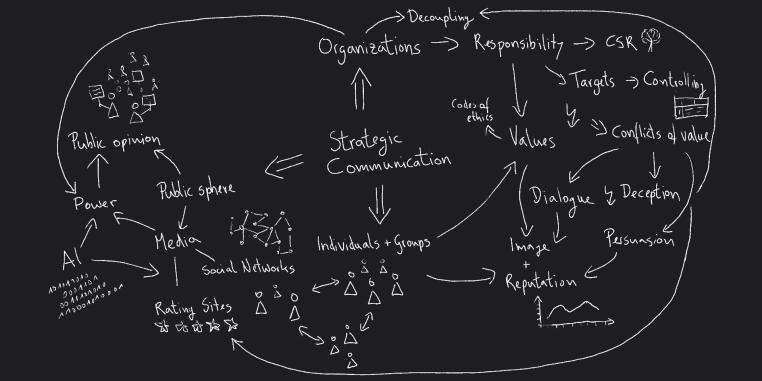 Decoupling
Organizations
Responsibility
CSR
Targets
Controlling
Codes of
ethics
Values
Conflicts of value
Public opinion
Strategic
Communication
Public sphere
Power
Dialogue
Deception
Media
Individuals + Groups
Image
+
Reputation
Persuasion
AI
Social Networks
Rating Sites